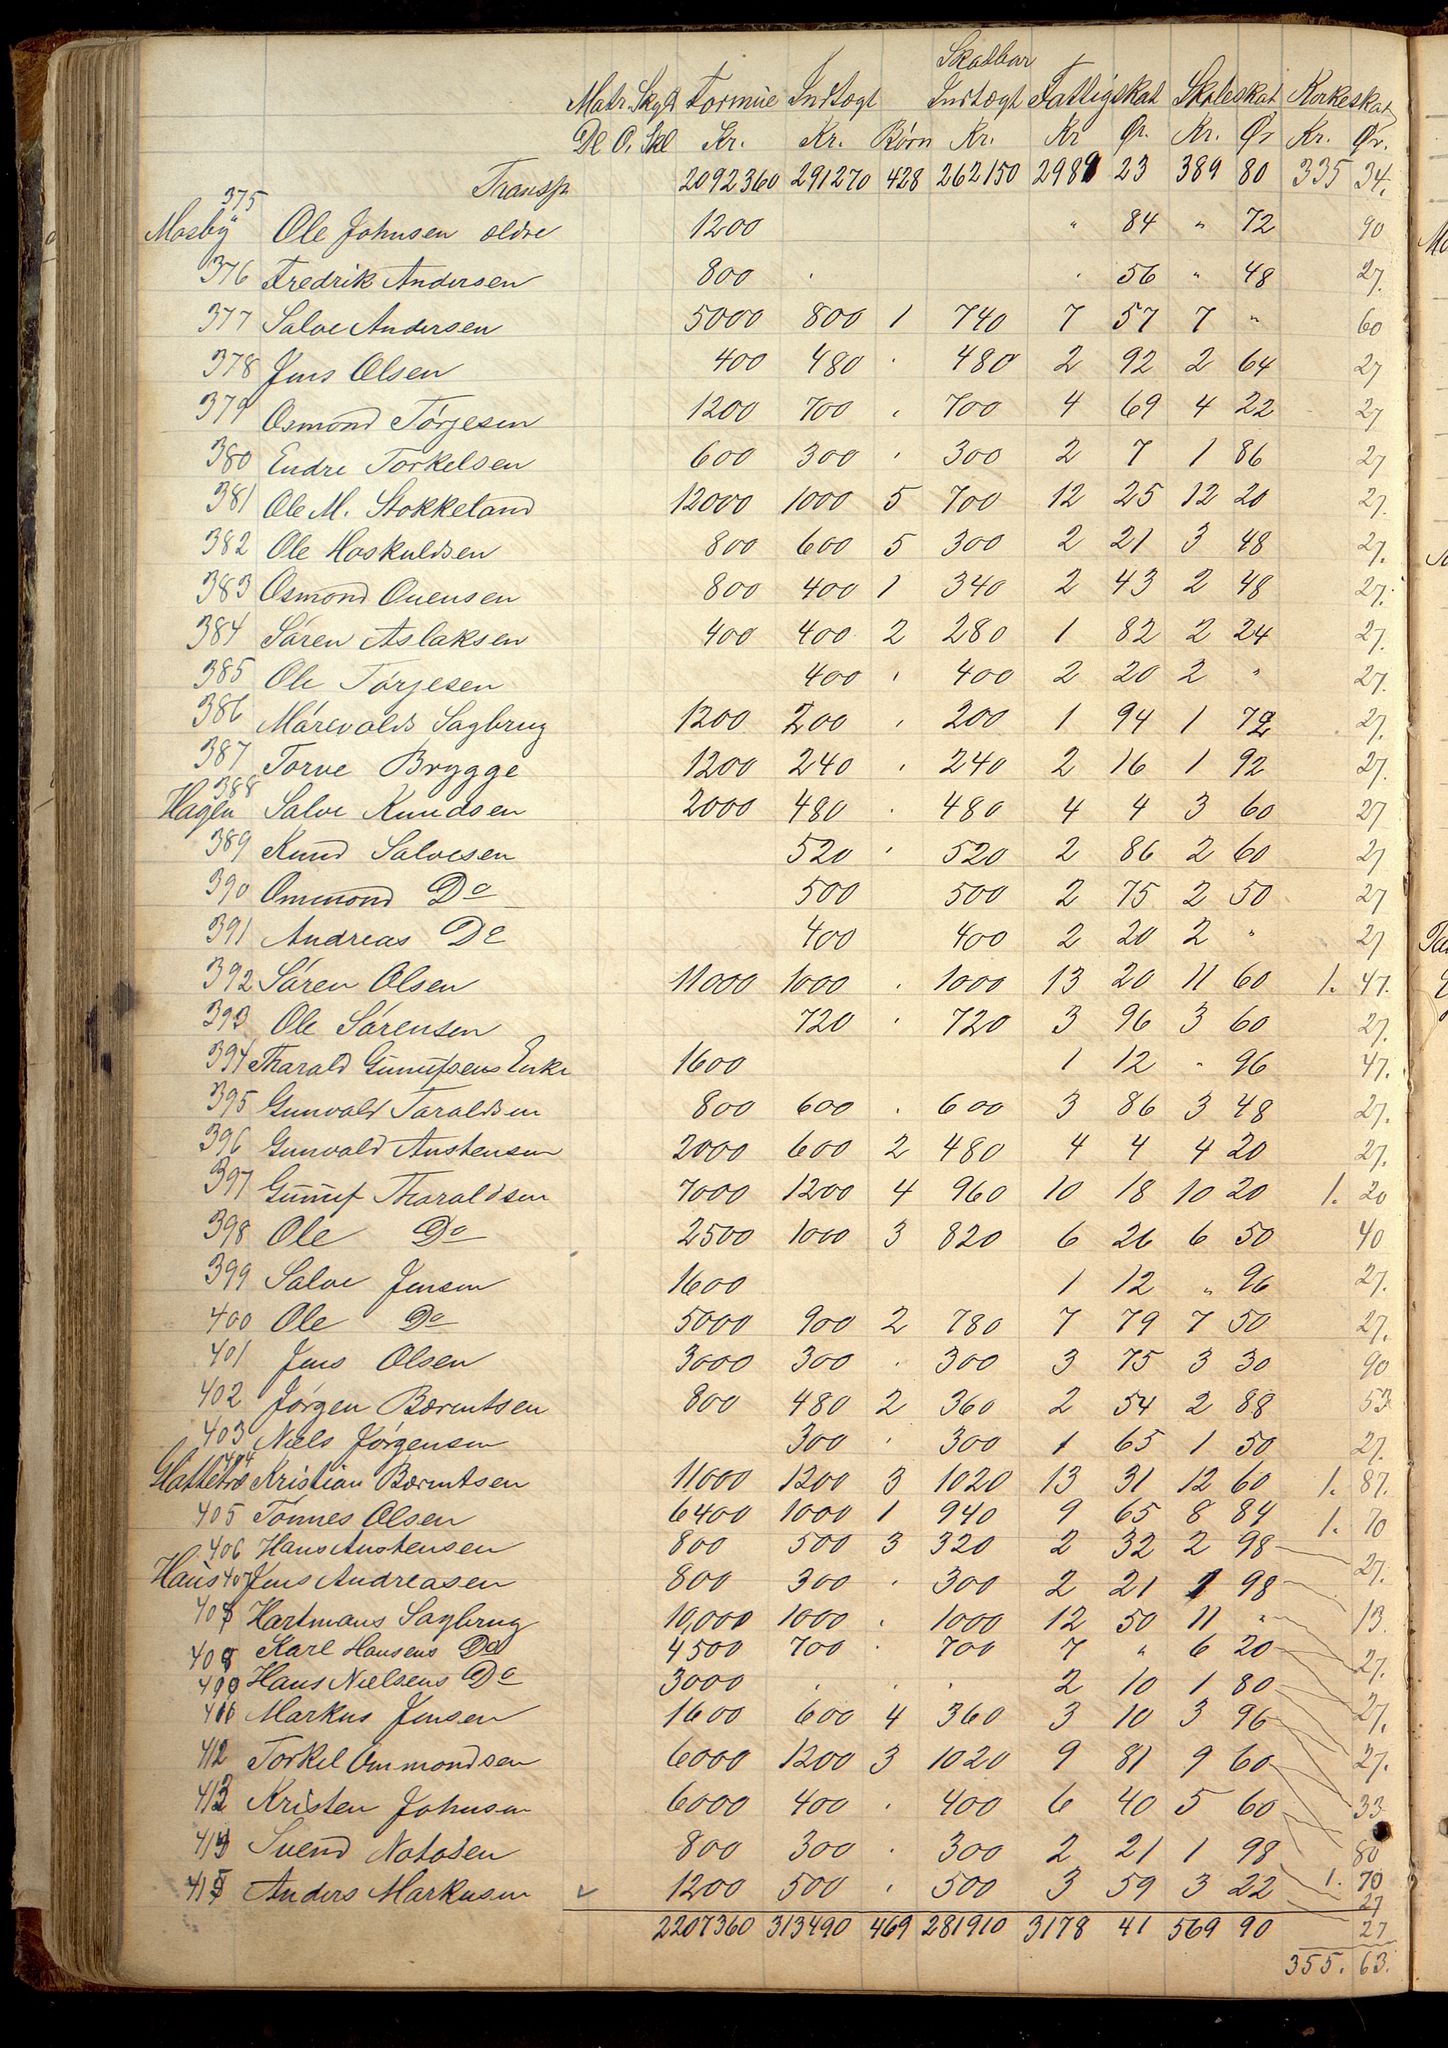 Skatbar
Matr. Skyld Formue Indtægt Indtægt Fattigskat Skoleskat Kirkeskat
Dl. O. Skl Kr. Kr. Børn Kr. Kr Ør. Kr. Ør Kr. Ør.
Transp 2092360 291270 428 262150 2989 23 389 80 335 34.
375
Mosby Ole Johnsen ældre 1200 " 84 " 72 90
376 Fredrik Andersen 800 . . 56 " 48 27.
377 Salve Andersen 5000 800 1 740 7 57 7 " 60
378 Jens Olsen 400 480 . 480 2 92 2 64 27
379 Osmond Törjesen 1200 700 . 700 4 69 4 22 27
380 Endre Torkelsen 600 300 . 300 2 7 1 86 27
381 Ole M. Stokkeland 12000 1000 5 700 12 25 12 20 27.
382 Ole Hoskuldsen 800 600 5 300 2 21 3 48 27.
383 Osmond Ouensen 800 400 1 340 2 43 2 48 27.
384 Sören Aslaksen 400 400 2 280 1 82 2 24 27.
385 Ole Törjesen 400 . 400 2 20 2 " 27.
386 Mårevolds Sagbrug 1200 200 . 200 1 94 1 72 27.
387 Torve Brygge 1200 240 . 240 2 16 1 92 27.
388
Hagen Salve Knudsen 2000 480 . 480 4 4 3 60 27
389 Knud Salvesen 520 . 520 2 86 2 60 27
390 Ommond Do 500 500 2 75 2 50 27
391 Andreas Do 400 400 2 20 2 " 27
392 Sören Olsen 11000 1000 . 1000 13 20 11 60 1. 47.
393 Ole Sörensen 720 . 720 3 96 3 60 27.
394 Tharald Gunufsens Enke 1600 1 12 " 96 47.
395 Gunvald Taraldsen 800 600 . 600 3 86 3 48 27.
396 Gunvald Austensen 2000 600 2 480 4 4 4 20 27.
397 Gunuf Tharaldsen 7000 1200 4 960 10 18 10 20 1. 20
398 Ole Do 2500 1000 3 820 6 26 6 50 40
399 Salve Jensen 1600 1 12 " 96 27.
400 Ole Do 5000 900 2 780 7 79 7 50 27.
401 Jens Olsen 3000 300 . 300 3 75 3 30 90
402 Jørgen Bærentsen 800 480 2 360 2 54 2 88 53
403 Niels Jørgensen 300 . 300 1 65 1 50 27.
404
Kristian Bærentsen 11000 1200 3 1020 13 31 12 60 1. 87.
405 Tönnes Olsen 6400 1000 1 940 9 65 8 84 1. 70
406 Hans Austensen 800 500 3 320 2 32 2 98 27.
Haus 407 Jens Andreasen 800 300 . 300 2 21 1 98 13.
408 Hartmans Sagbrug 10,000 1000 . 1000 12 50 11 " 27.
408 Karl Hansens Do 4500 700 . 700 7 " 6 20 27.
409 Hans Nielsens Do 3000 . . . 2 10 1 80 27.
410 Markus Jensen 1600 600 4 360 3 10 3 96 33
412 Torkel Ommondsen 6000 1200 3 1020 9 81 9 60 80
413 Kristen Johnsen 6000 400 . 400 6 40 5 60 1. 70
414 Svend Natvsen 800 300 . 300 2 21 1 98 27
415 Anders Markusen 1200 500 . 500 3 59 3 22 27
2207360 313490 469 281910 3178 41 569 90
355. 63.